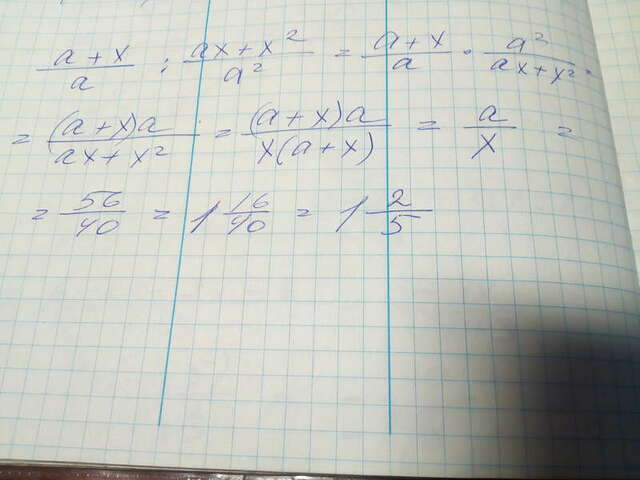 (a + x)/a : (ax + x²)/a² = (a + x)/a · a²/(ax + x²) =
= (a + x)a/(ax + x²) = (a + x)a/(x(a + x)) = a/x =
= 56/40 = 1 16/40 = 1 2/5